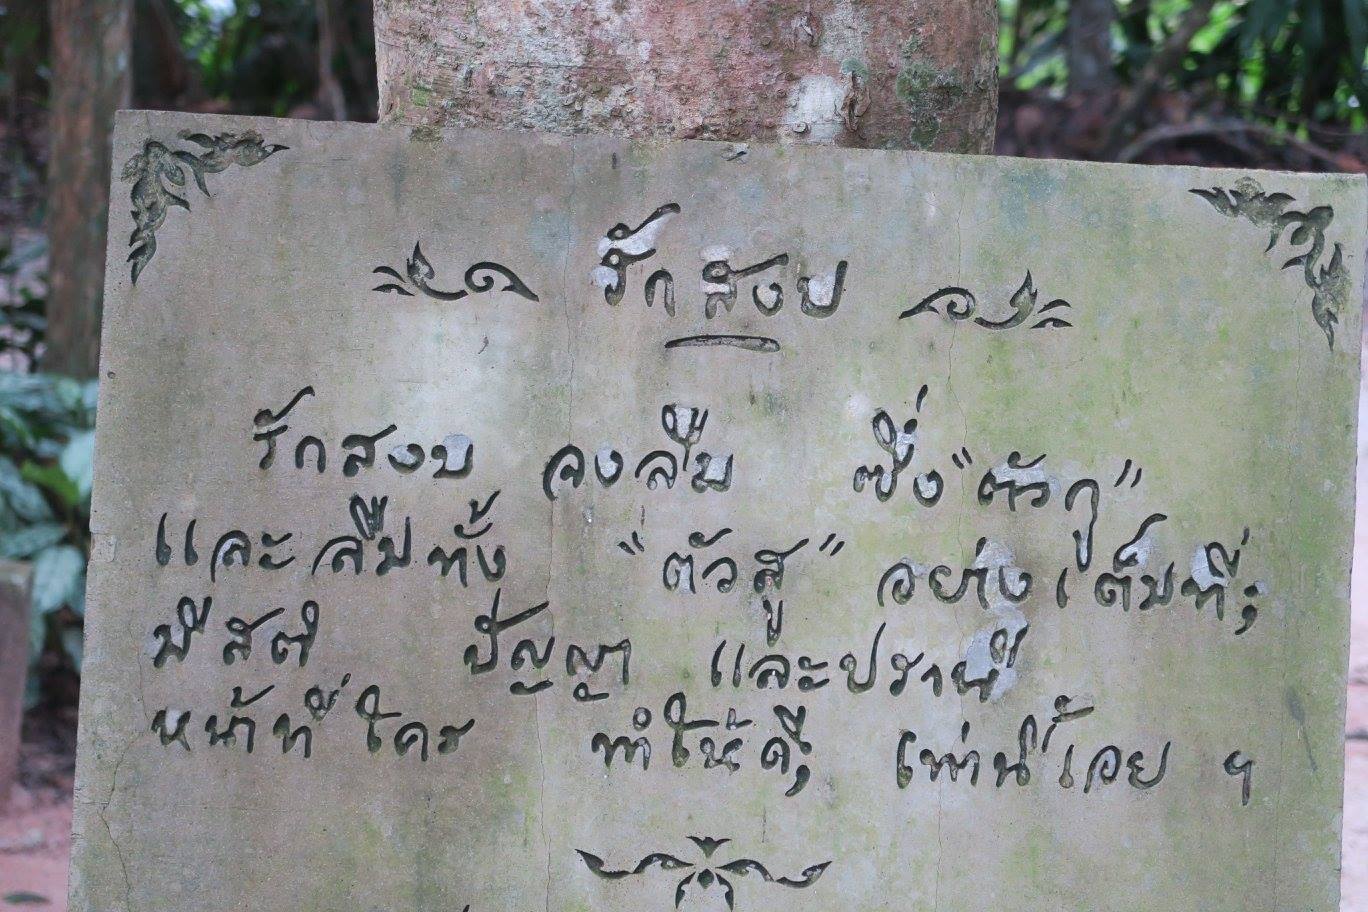 รักสงบ
รักสงบ จงลืม ซึ่ง "ตัวกู"
และลืมทั้ง "ตัวสู" อย่างเต็มที่;
มีสติ ปัญญา และปรานี
หน้าที่ใคร ทำให้ดี; เท่านี้เอย ฯ